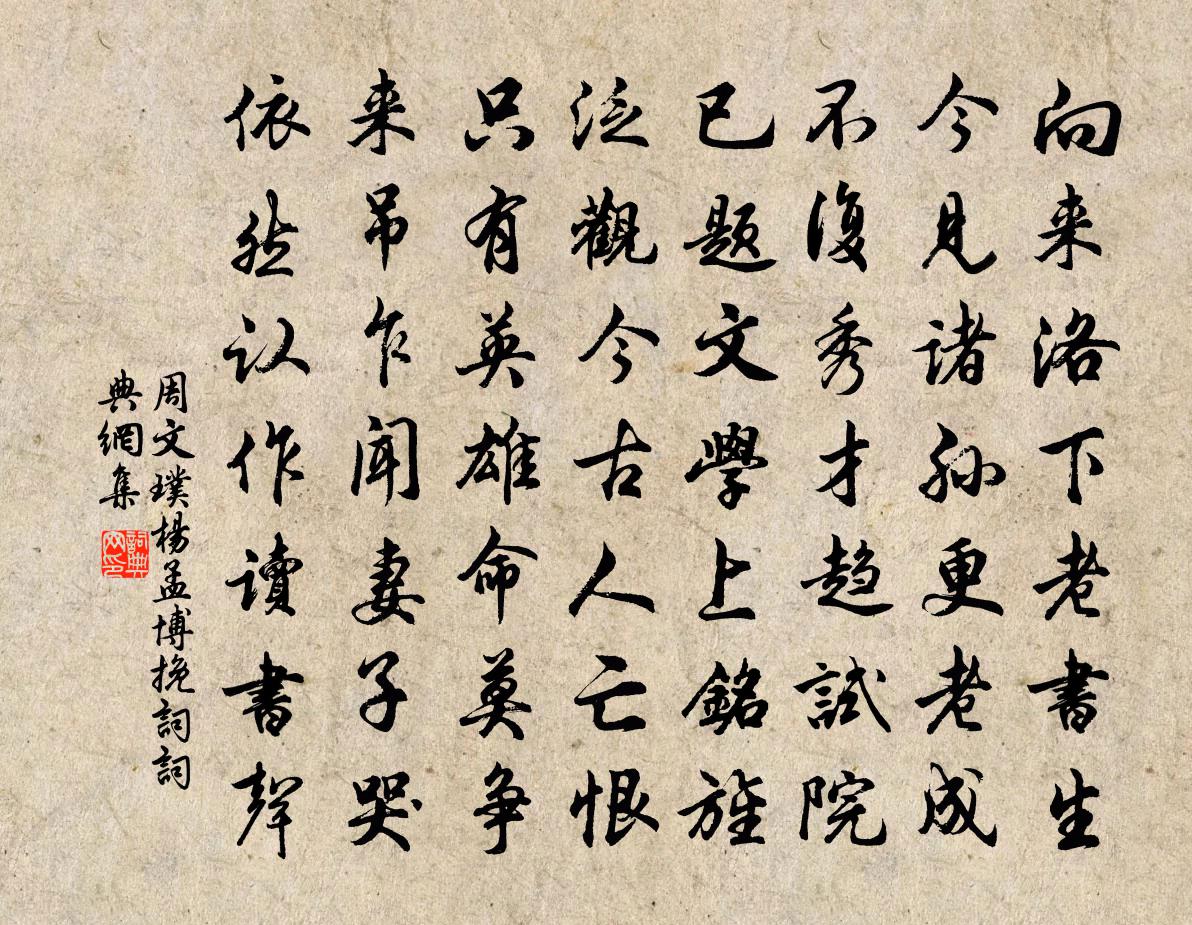 向来洛下老書生
今見諸孙更老成
不復秀才趋試院
已題文學上銘旌
泛觀今古人亡恨
只有英雄命莫争
来吊乍闻妻子哭
依然认作讀書聲
周文璞楊孟博挽詞詞
典網集
詞典
网印